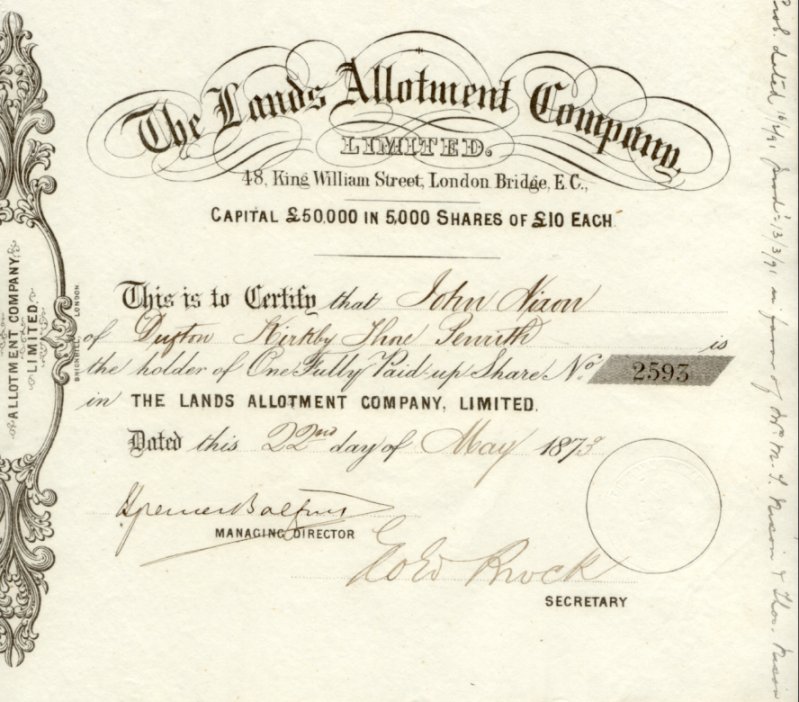 The Lands Allotment Company,
LIMITED.
48, King William Street, London Bridge, E.C.,
CAPITAL £50,000 IN 5,000 SHARES OF £10 EACH.
This is to Certify that John Nixon
of Dufton Kirkby Thore Penrith is
the holder of One Fully Paid up Share No. 2593
in THE LANDS ALLOTMENT COMPANY, LIMITED.
Dated this 22nd day of May 1873
Spencer Balfour
MANAGING DIRECTOR
Geo Ed Brock
SECRETARY
ALLOTMENT COMPANY,
LIMITED.
LONDON
Prob. dated 10/2/91 13/3/91 in favor of Mrs M. Nixon & Thos. Nixon